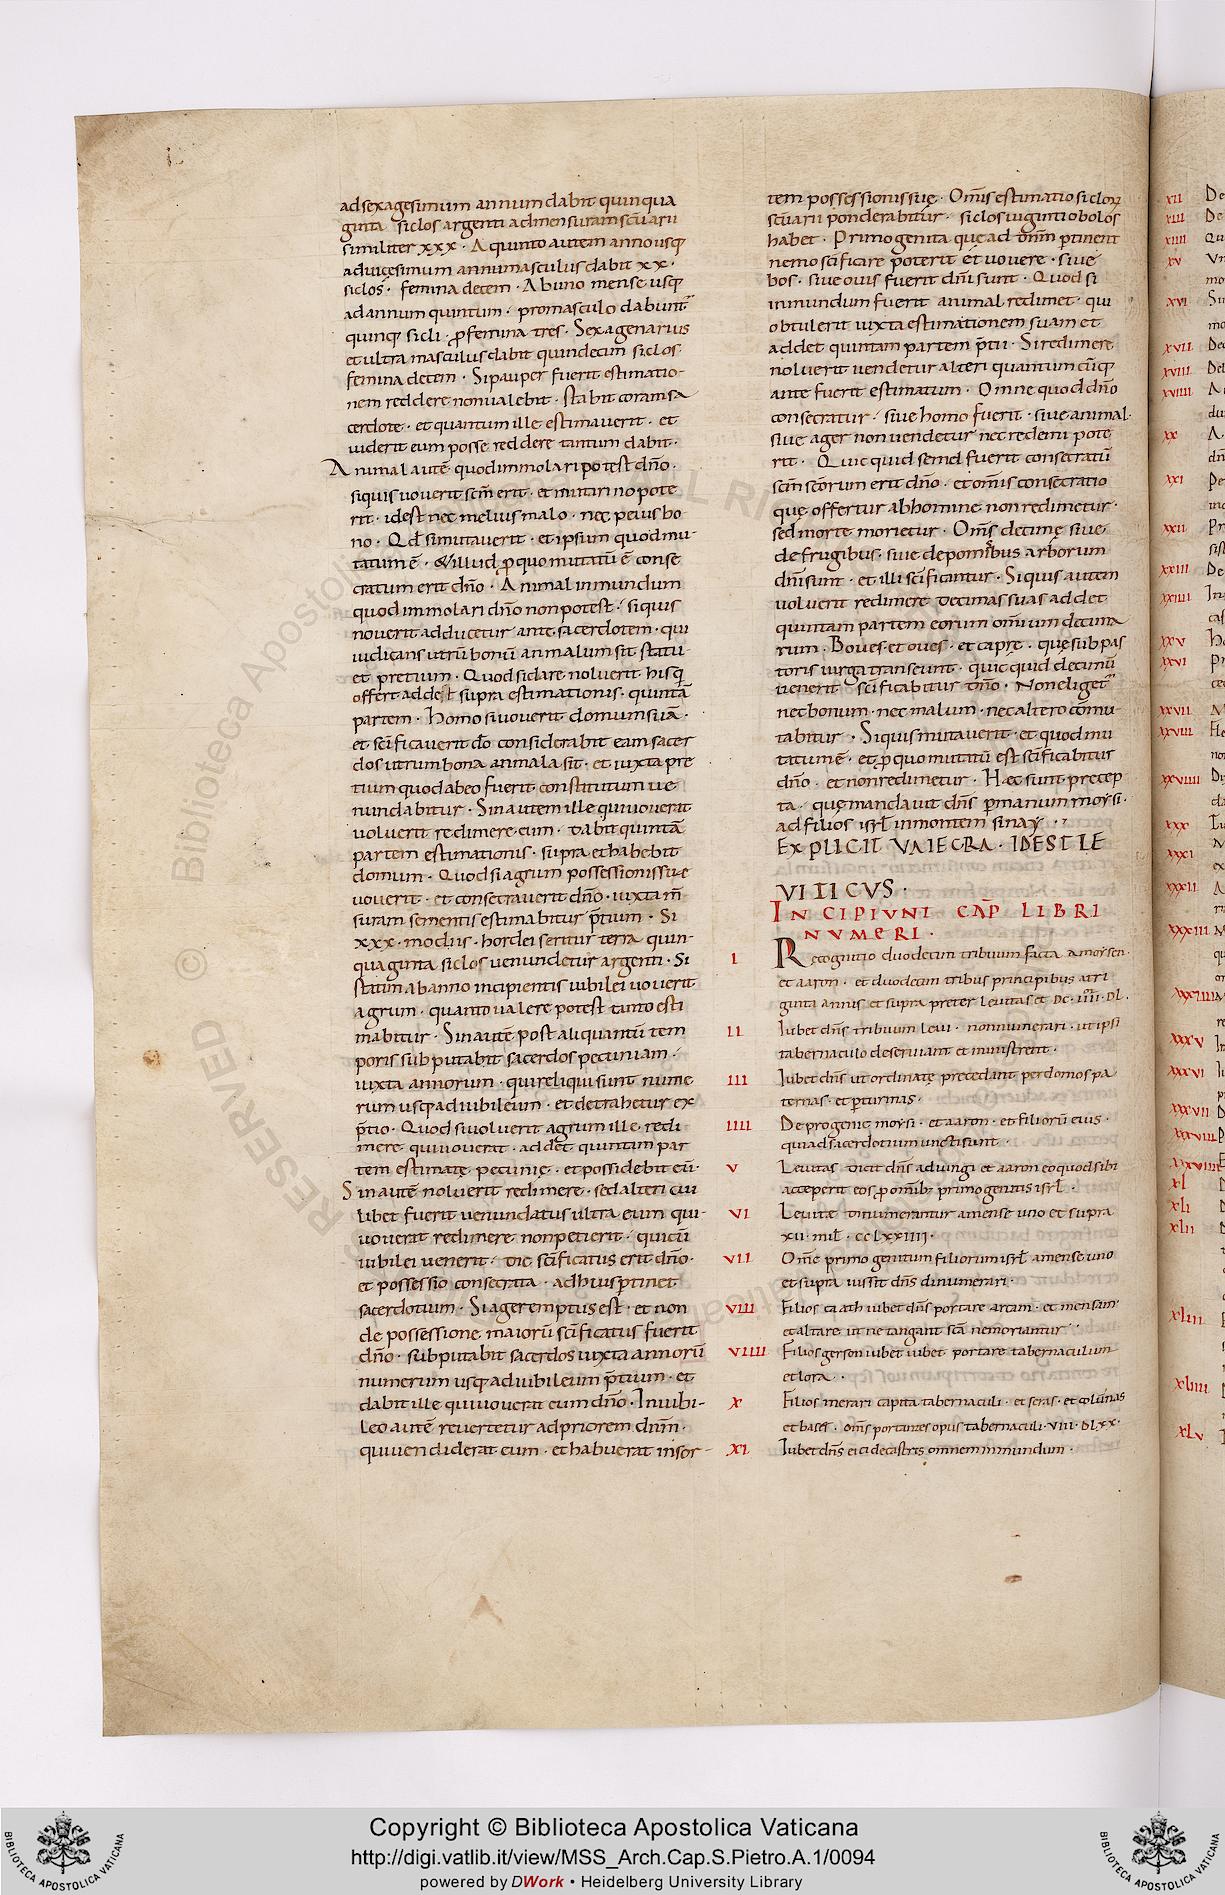 ad sexagesimum annum dabit quinqua
ginta siclos argenti ad mensuram scuarii
similiter xxx · A quinto autem anno usq
ad uicesimum annum masculus dabit xx ·
siclos · femina decem · Ab uno mense usq
ad annum quintum · pro masculo dabunt
quinq sicli · p femina tres · Sexagenarius
et ultra masculus dabit quindecim siclos
femina decem · Si pauper fuerit estimatio-
nem reddere non ualebit · stabit coram sa
cerdote · et quantum ille estimauerit · et
uiderit eum posse reddere tantum dabit ·
Animal autē quod immolari potest dño ·
siquis uouerit scm erit · et mutari no pote
rit · idest nec melius malo · nec peius bo
no · Qd si mutauerit · et ipsum quod mu-
tatum ē · & illud p quo mutatū ē conse
cratum erit dño · Animal inmundum
quod immolari dño non potest · siquis
uouerit adducetur ante sacerdotem · qui
iudicans utrū bonū an malum sit statu-
et pretium · Quod si dare uoluerit his q
offert addet supra estimationis · quintā
partem · Homo si uouerit domum suā ·
et scificauerit do considerabit eam sacer
dos utrum bona an mala sit · et iuxta pre
tium quod ab eo fuerit constitutum ue
nundabitur · Sin autem ille qui uouerat
uoluerit redimere eum · dabit quintā
partem estimationis · supra et habebit
domum · Quod si agrum possessionis suę
uouerit · et consecrauerit dño · iuxta m̄
suram sementis estimabitur p̄tium · Si
xxx · modiis · hordei seritur terra quin-
quaginta siclos uenundetur argenti · Si
statim ab anno incipientis iubilei uouerit
agrum · quanto ualere potest tanto esti
mabitur · Sin autē post aliquantū tem
poris subputabit sacerdos pecuniam ·
iuxta annorum · qui reliqui sunt nume
rum usq ad iubileum · et detrahetur ex
p̄tio · Quod si uoluerit agrum ille redi
mere qui uouerat · addet quintam par
tem estimatę pecunię · et possidebit eū ·
Sin autē noluerit redimere · sed alteri cui
libet fuerit uenundatus ultra eum qui-
uouerat redimere non petierit · quicū
iubilei uenerit · die scificatus erit dño ·
et possessio consecrata · ad hius ptinet
sacerdotium · Si ager emptus est · et non
de possessione maiorū scificatus fuerit
dño · subputabit sacerdos iuxta annorū
numerum usq ad iubileum p̄tium · et
dabit ille qui uouerat eum dño · In iubi-
leo autē reuertetur ad priorem dnm ·
qui uendiderat eum · et habuerat in sor-
tem possessionis suę · Omis estimatio siclor
scuarii ponderabitur · siclos uiginti obolos
habet · Primogenita que ad dnm ptinent
nemo scificare poterit et uouere · siue
bos · siue ouis fuerit dni sunt · Quod si
inmundum fuerit animal redimet · qui
obtulerit iuxta estimationem suam et
addet quintam partem p̄tii · Si redimere
noluerit uendetur alteri quantum cūq
ante fuerit estimatum · Omne quod dño
consecratur · siue homo fuerit · siue animal ·
siue ager non uendetur nec redemi pote
rit · Quicquid semel fuerit consecratū
scm scorum erit dño · et omis consecratio
quę offertur ab homine non redimetur ·
sed morte morietur · Oms decime siue
de frugibus · siue de pomis bus arborum
dni sunt · et illi scificantur · Si quis autem
uoluerit redimere decimas suas addet
quintam partem eorum omium decima
rum · Boues · et oues · et capre · quę sub pas
toris uirga transeunt · quicquid decimū
uenerit · scificabitur dño · Non eliget
nec bonum · nec malum · nec altero comu-
tabitur · Si quis mutauerit · et quod mu
tatum ē · et p quo mutatū est scificabitur
dño · et non redimetur · Haec sunt precep
ta · quę mandauit dns p manum moysi ·
ad filios isrl in montem sinay · ·
EXPLICIT VAIECRA · IDEST LE
VITICVS ·
INCIPIUNT CAP LIBRI
NUMERI ·
I Recognitio duodecim tribuum facta a moysen ·
et aaron · et duodecim tribus principibus a tri
ginta annis et supra preter leuitas et DC · III · DL ·
II Iubet dns tribuum leui · non numerari · ut ipsi
tabernaculo deseruiant et ministrent ·
III Iubet dns ut ordinatę precedant per domos pa
ternas · et p turmas ·
IIII De progenie moysi · et aaron · et filiorū eius ·
qui ad sacerdotium uncti sunt ·
V Leuitas dicit dns adiungi et aaron eo quod sibi
acceperit eos p omib; primogenitis isrl ·
VI Leuitae dinumerantur a mense uno et supra
xii · mil · cclxxiiii ·
VII Ome primogenitum filiorum isrl a mense uno
et supra iussit dns dinumerari ·
VIII Filios caath iubet dns portare arcam · et mensam
et altare ut ne tangant sca ne moriantur ·
VIIII Filios gerson iubet iubet portare tabernaculum
et lora · ·
X Filios merari capita tabernaculi · et seras · et columnas
et bases · oms portantes opus tabernaculi · VIII · DLXX ·
XI Iubet dns eici de castris omnem inmundum ·
XII De
XIII De
XIIII Qu
XV
XVI
XVII De
XVIII De
XVIIII
XX
XXI
XXII
XXIII De
XXIIII
XXV
XXVI
XXVII
XXVIII
XXVIIII
XXX
XXXI
XXXII
XXXIII
XXXIIII
XXXV
XXXVI
XXXVII
XXXVIII
XXXVIIII
XL
XLI
XLII
XLIII
XLIIII
XLV
© Biblioteca Apostolica Vaticana ALL RIGHTS RESERVED
Copyright © Biblioteca Apostolica Vaticana
http://digi.vatlib.it/view/MSS_Arch.Cap.S.Pietro.A.1/0094
powered by DWork • Heidelberg University Library
BIBLIOTECA APOSTOLICA VATICANA
BIBLIOTECA APOSTOLICA VATICANA